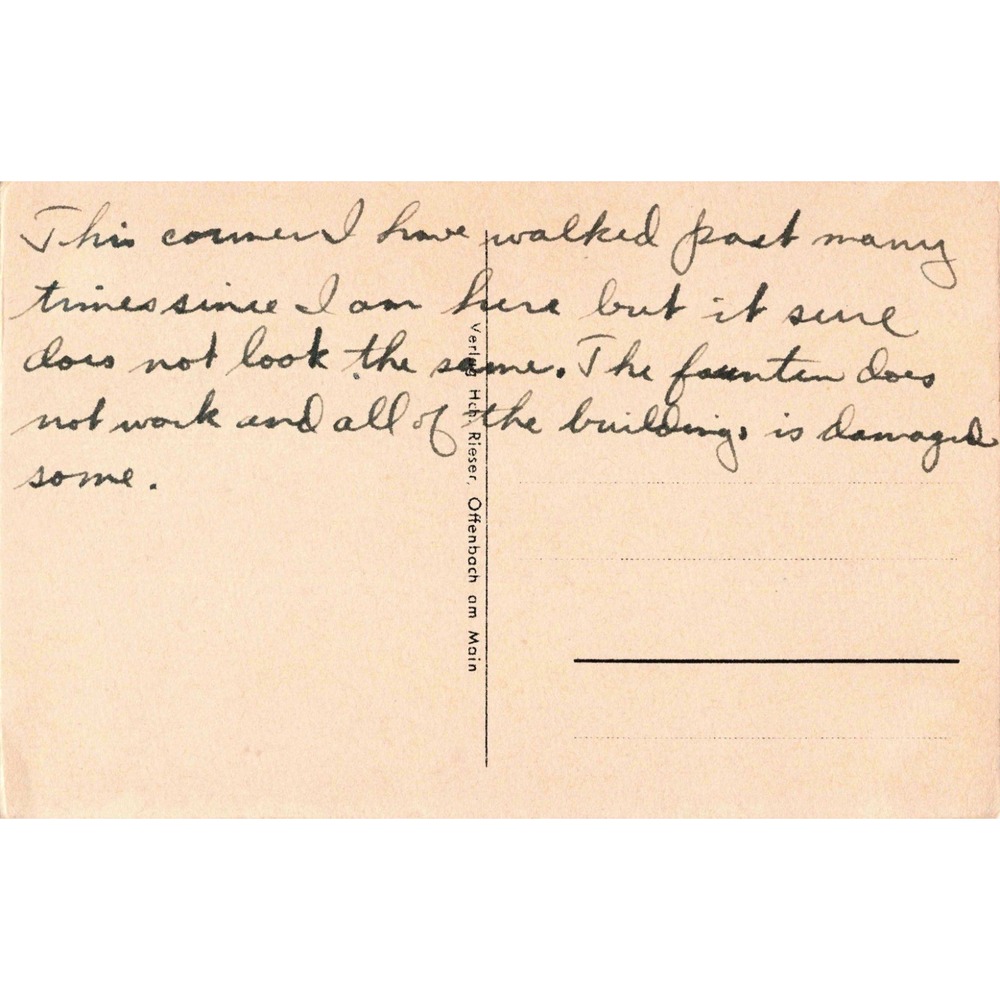 This corner I have walked past many
times since I am here but it sure
does not look the same. The founten does
not work and all of the buildings is damaged
some.
Verlag Hch. Rieser, Offenbach am Main